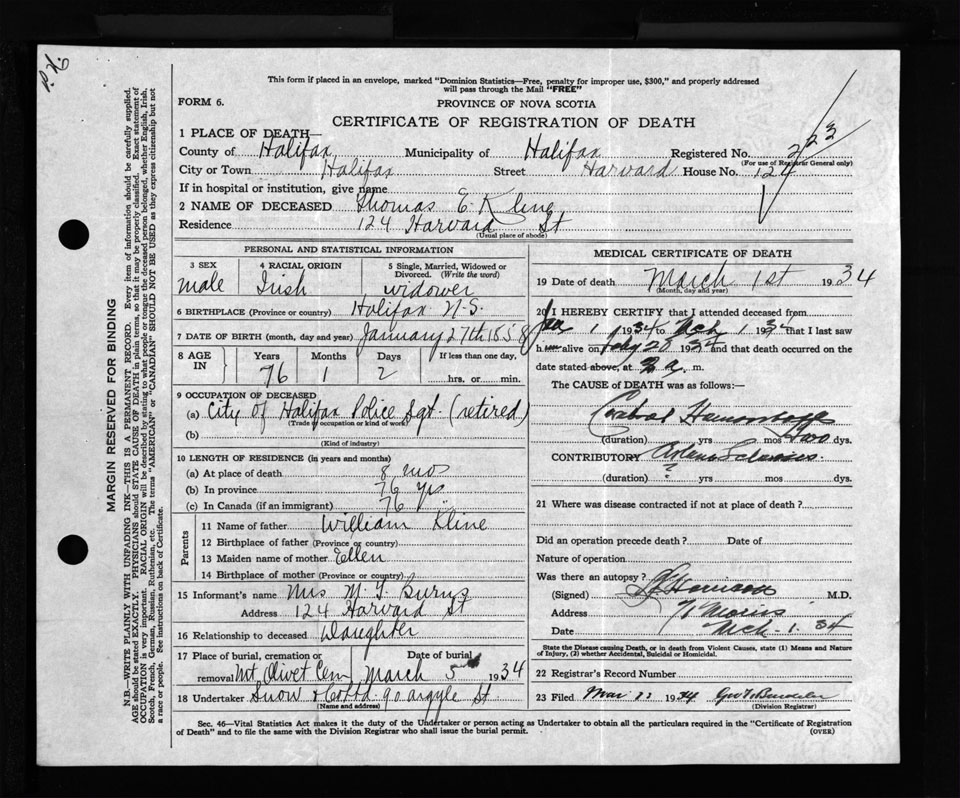 This form if placed in an envelope, marked "Dominion Statistics—Free, penalty for improper use, $300," and properly addressed
will pass through the Mail "FREE"
FORM 6.
PROVINCE OF NOVA SCOTIA
CERTIFICATE OF REGISTRATION OF DEATH
223
1 PLACE OF DEATH—
County of Halifax Municipality of Halifax Registered No.
(For use of Registrar General only)
City or Town Halifax Street Harvard House No. 124
If in hospital or institution, give name
2 NAME OF DECEASED Thomas E. Kline
Residence 124 Harvard St
(Usual place of abode)
PERSONAL AND STATISTICAL INFORMATION
3 SEX 4 RACIAL ORIGIN 5 Single, Married, Widowed or Divorced. (Write the word)
male Irish widower
6 BIRTHPLACE (Province or country) Halifax N.S.
7 DATE OF BIRTH (month, day and year) January 27th 1858
8 AGE IN Years Months Days If less than one day,
76 1 2 hrs. or min.
9 OCCUPATION OF DECEASED
(a) City of Halifax Police Sgt. (retired)
(Trade, occupation or kind of work)
(b)
(Kind of industry)
10 LENGTH OF RESIDENCE (in years and months)
(a) At place of death 8 mos
(b) In province 76 yrs
(c) In Canada (if an immigrant) 76 "
Parents
11 Name of father William Kline
12 Birthplace of father (Province or country)
13 Maiden name of mother Ellen
14 Birthplace of mother (Province or country)
15 Informant's name Mrs M. J. Burns
Address 124 Harvard St
16 Relationship to deceased Daughter
17 Place of burial, cremation or removal Date of burial
Mt. Olivet Cem March 5 1934
18 Undertaker Snow & Co Ltd. 90 Argyle St
(Name and address)
MEDICAL CERTIFICATE OF DEATH
19 Date of death March 1st 1934
(Month, day and year)
20 I HEREBY CERTIFY that I attended deceased from
Jan 1 1934 to Mch 1 1934 that I last saw
h im alive on Feby 28 1934 and that death occurred on the
date stated above, at 2 a. m.
The CAUSE of DEATH was as follows:—
Cerebral Hemorrhage
(duration) yrs mos two dys.
CONTRIBUTORY Arterio Sclerosis
(duration) ? yrs mos dys.
21 Where was disease contracted if not at place of death?
Did an operation precede death? Date of
Nature of operation
Was there an autopsy?
(Signed) M.D.
Address 71 Morris
Date Mch - 1. 34
State the Disease causing Death, or in death from Violent Causes, state (1) Means and Nature
of Injury, (2) whether Accidental, Suicidal or Homicidal.
22 Registrar's Record Number
23 Filed Mar 1934
(Division Registrar)
Sec. 46—Vital Statistics Act makes it the duty of the Undertaker or person acting as Undertaker to obtain all the particulars required in the "Certificate of Registration
of Death" and to file the same with the Division Registrar who shall issue the burial permit. (OVER)
MARGIN RESERVED FOR BINDING
N.B.—WRITE PLAINLY WITH UNFADING INK—THIS IS A PERMANENT RECORD. Every item of information should be carefully supplied.
AGE should be stated EXACTLY. PHYSICIANS should STATE CAUSE OF DEATH in plain terms, so that it may be properly classified. Exact statement of
OCCUPATION is very important. RACIAL ORIGIN will be described by stating to what people or tongue the deceased person belonged, whether English, Irish,
Scotch, French, German, Russian, Ruthenian, etc. The terms "AMERICAN" or "CANADIAN" SHOULD NOT BE USED as they express citizenship but not
a race or people. See instructions on back of Certificate.